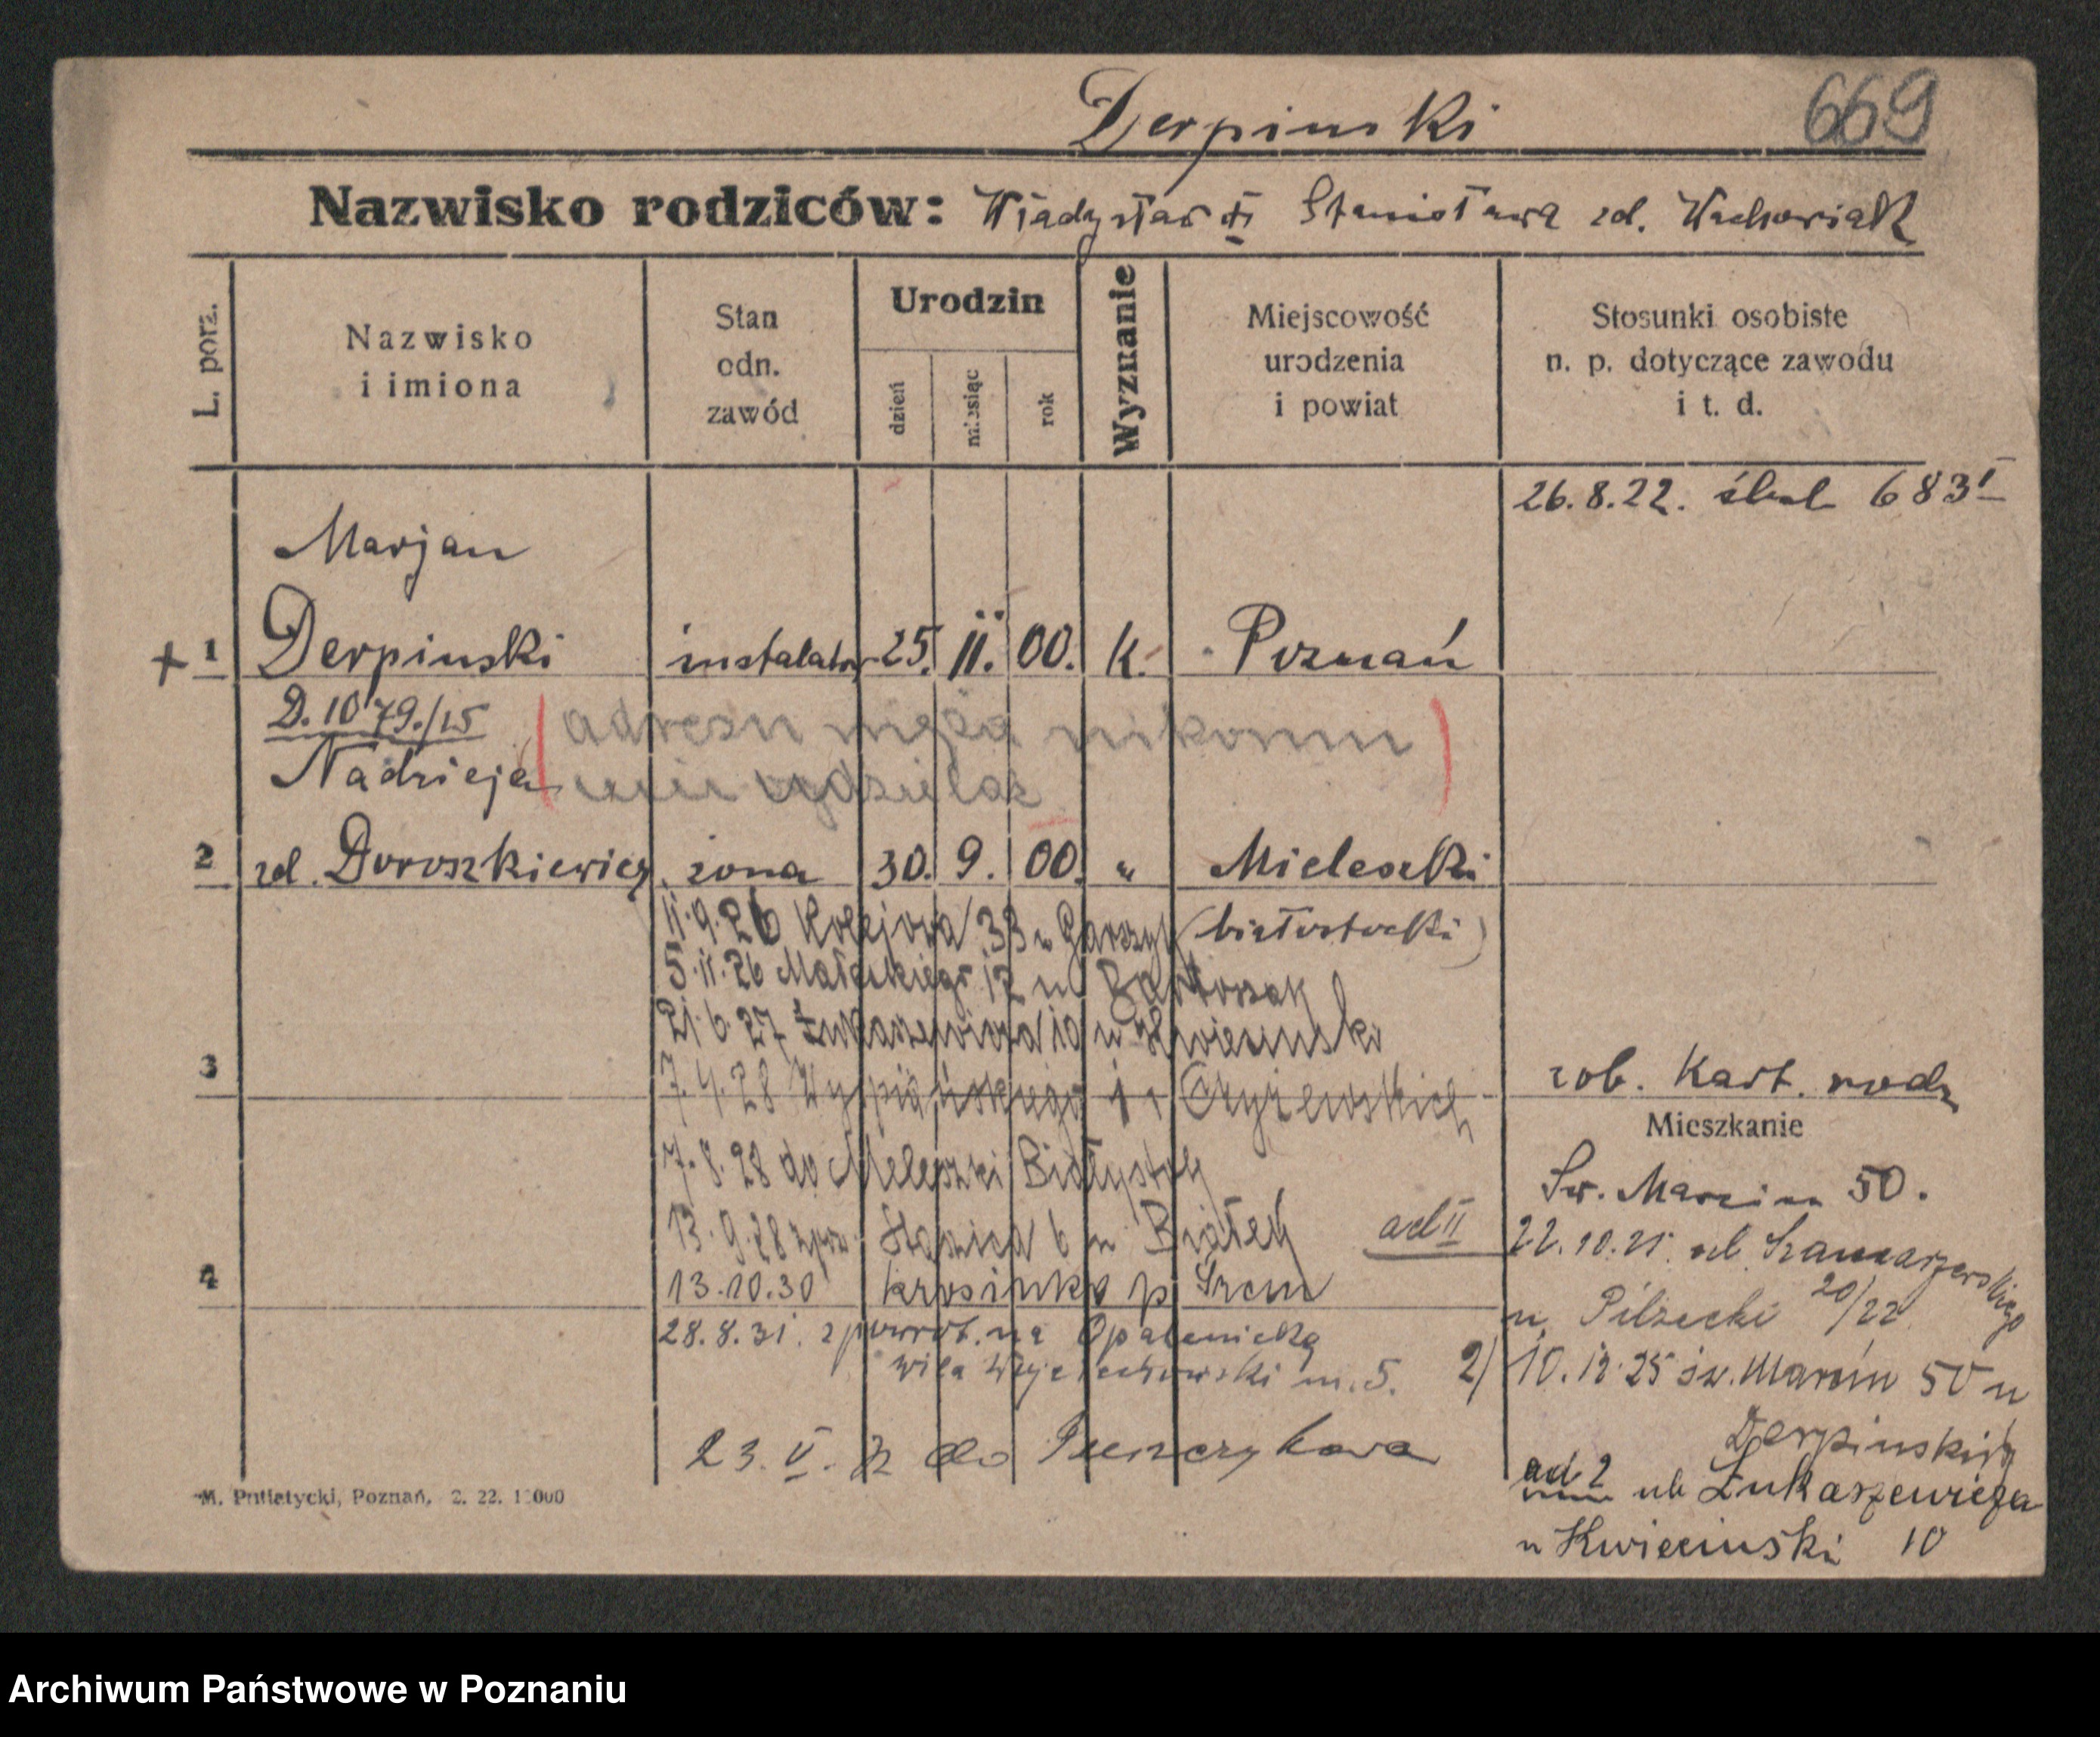 Derpinski 669
Nazwisko rodziców: Władysław i Stanisława zd. Wachowiak
L. porz.
Nazwisko
i imiona
Stan
odn.
zawód
Urodzin
dzień
miesiąc
rok
Wyznanie
Miejscowość
urodzenia
i powiat
Stosunki osobiste
n. p. dotyczące zawodu
i t. d.
26.8.22. ślub 683 I
Marjan
+ 1 Derpinski instalator 25. 11. 00. k. Poznań
D. 1079./15
(adresu męża nikomu)
Nadzieja nie udzielać
2 zd. Doroszkiewicz żona 30. 9. 00. " Mieleszki
(białostocki)
11.9.26 Kolejowa 33 u Garszyk
5.11.26 Małeckiego 12 u Bartoszak
21.6.27 Łukaszewicza 10 u Kwiecinski
3
7.4.28 Wyspiańskiego 1 Czyżewskich
7.8.28 do Mieleszki Białystok
13.9.28 6 u Białek
4
13.10.30 Krosinko p Śrem
28.8.31. zpowrot. na Opalenicką
willa Wojciechowski m. 5.
23. V. do
rob. Kart. rodz
Mieszkanie
Św. Marcin 50.
ad II 22.10.25 ul. Szamarzewskiego
u. Pilzecki 20/22
2) 10.12.25 św. Marcin 50 u
Derpinskich
ad 2 ul. Łukaszewicza
u Kwiecinski 10
M. Putiatycki, Poznań, 2. 22. 1 000
Archiwum Państwowe w Poznaniu